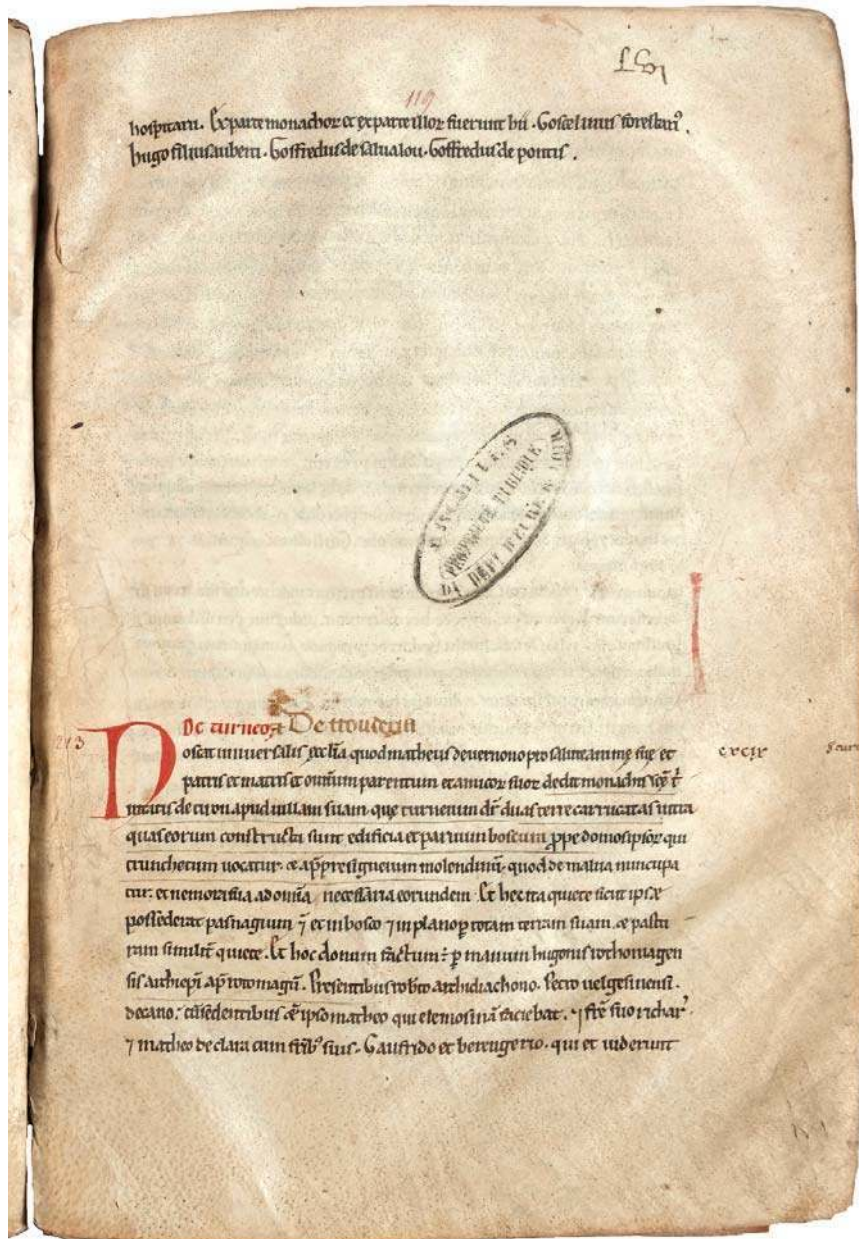 119
hospitarii. Ex parte monachor et ex parte illor fuerunt hii. Goscelinus forestari⁹.
hugo filius auberti. Goffredus de salualou. Goffredus de pontis.
De turneo Detrouderia
213
Noscat universalis eccl̄ia quod matheus de uernono pro salute anime sue et
cxcix
patris et matris et omnium parentum et amicor suor dedit monachis sce t̄
nitatis de tiron apud uillam suam. que turnenum dr̄ duas terre carrucatas intra
quas eorum constructa sunt edificia et paruum boscum ꝓpe domos ipsor qui
trunchetum uocatur. et ap̄ presiguenum molendinū. quod de malua nuncupa
tur. et nemora sua ad omīa necessaria eorundem. Et hec ita quiete sicut ipse
possederat pasnagium ⁊ et in bosco ⁊ in plano ꝑ totam terram suam. et pastu
ram similit̄ quiete. Et hoc donum factum: ꝑ manum hugonis rothomagen
sis archiepi ap̄ rotomagū. Presentibus rob̄to archidiachono. Petro uelgesinensi.
decano: ipso matheo qui elemosinā faciebat. ⁊ fr̄e suo richar
⁊ matheo de clara cum fr̄ib⁹ suis. Gaufrido et berengerio. qui et uiderunt